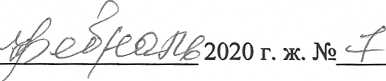 февраль 2020 г. ж. № 7